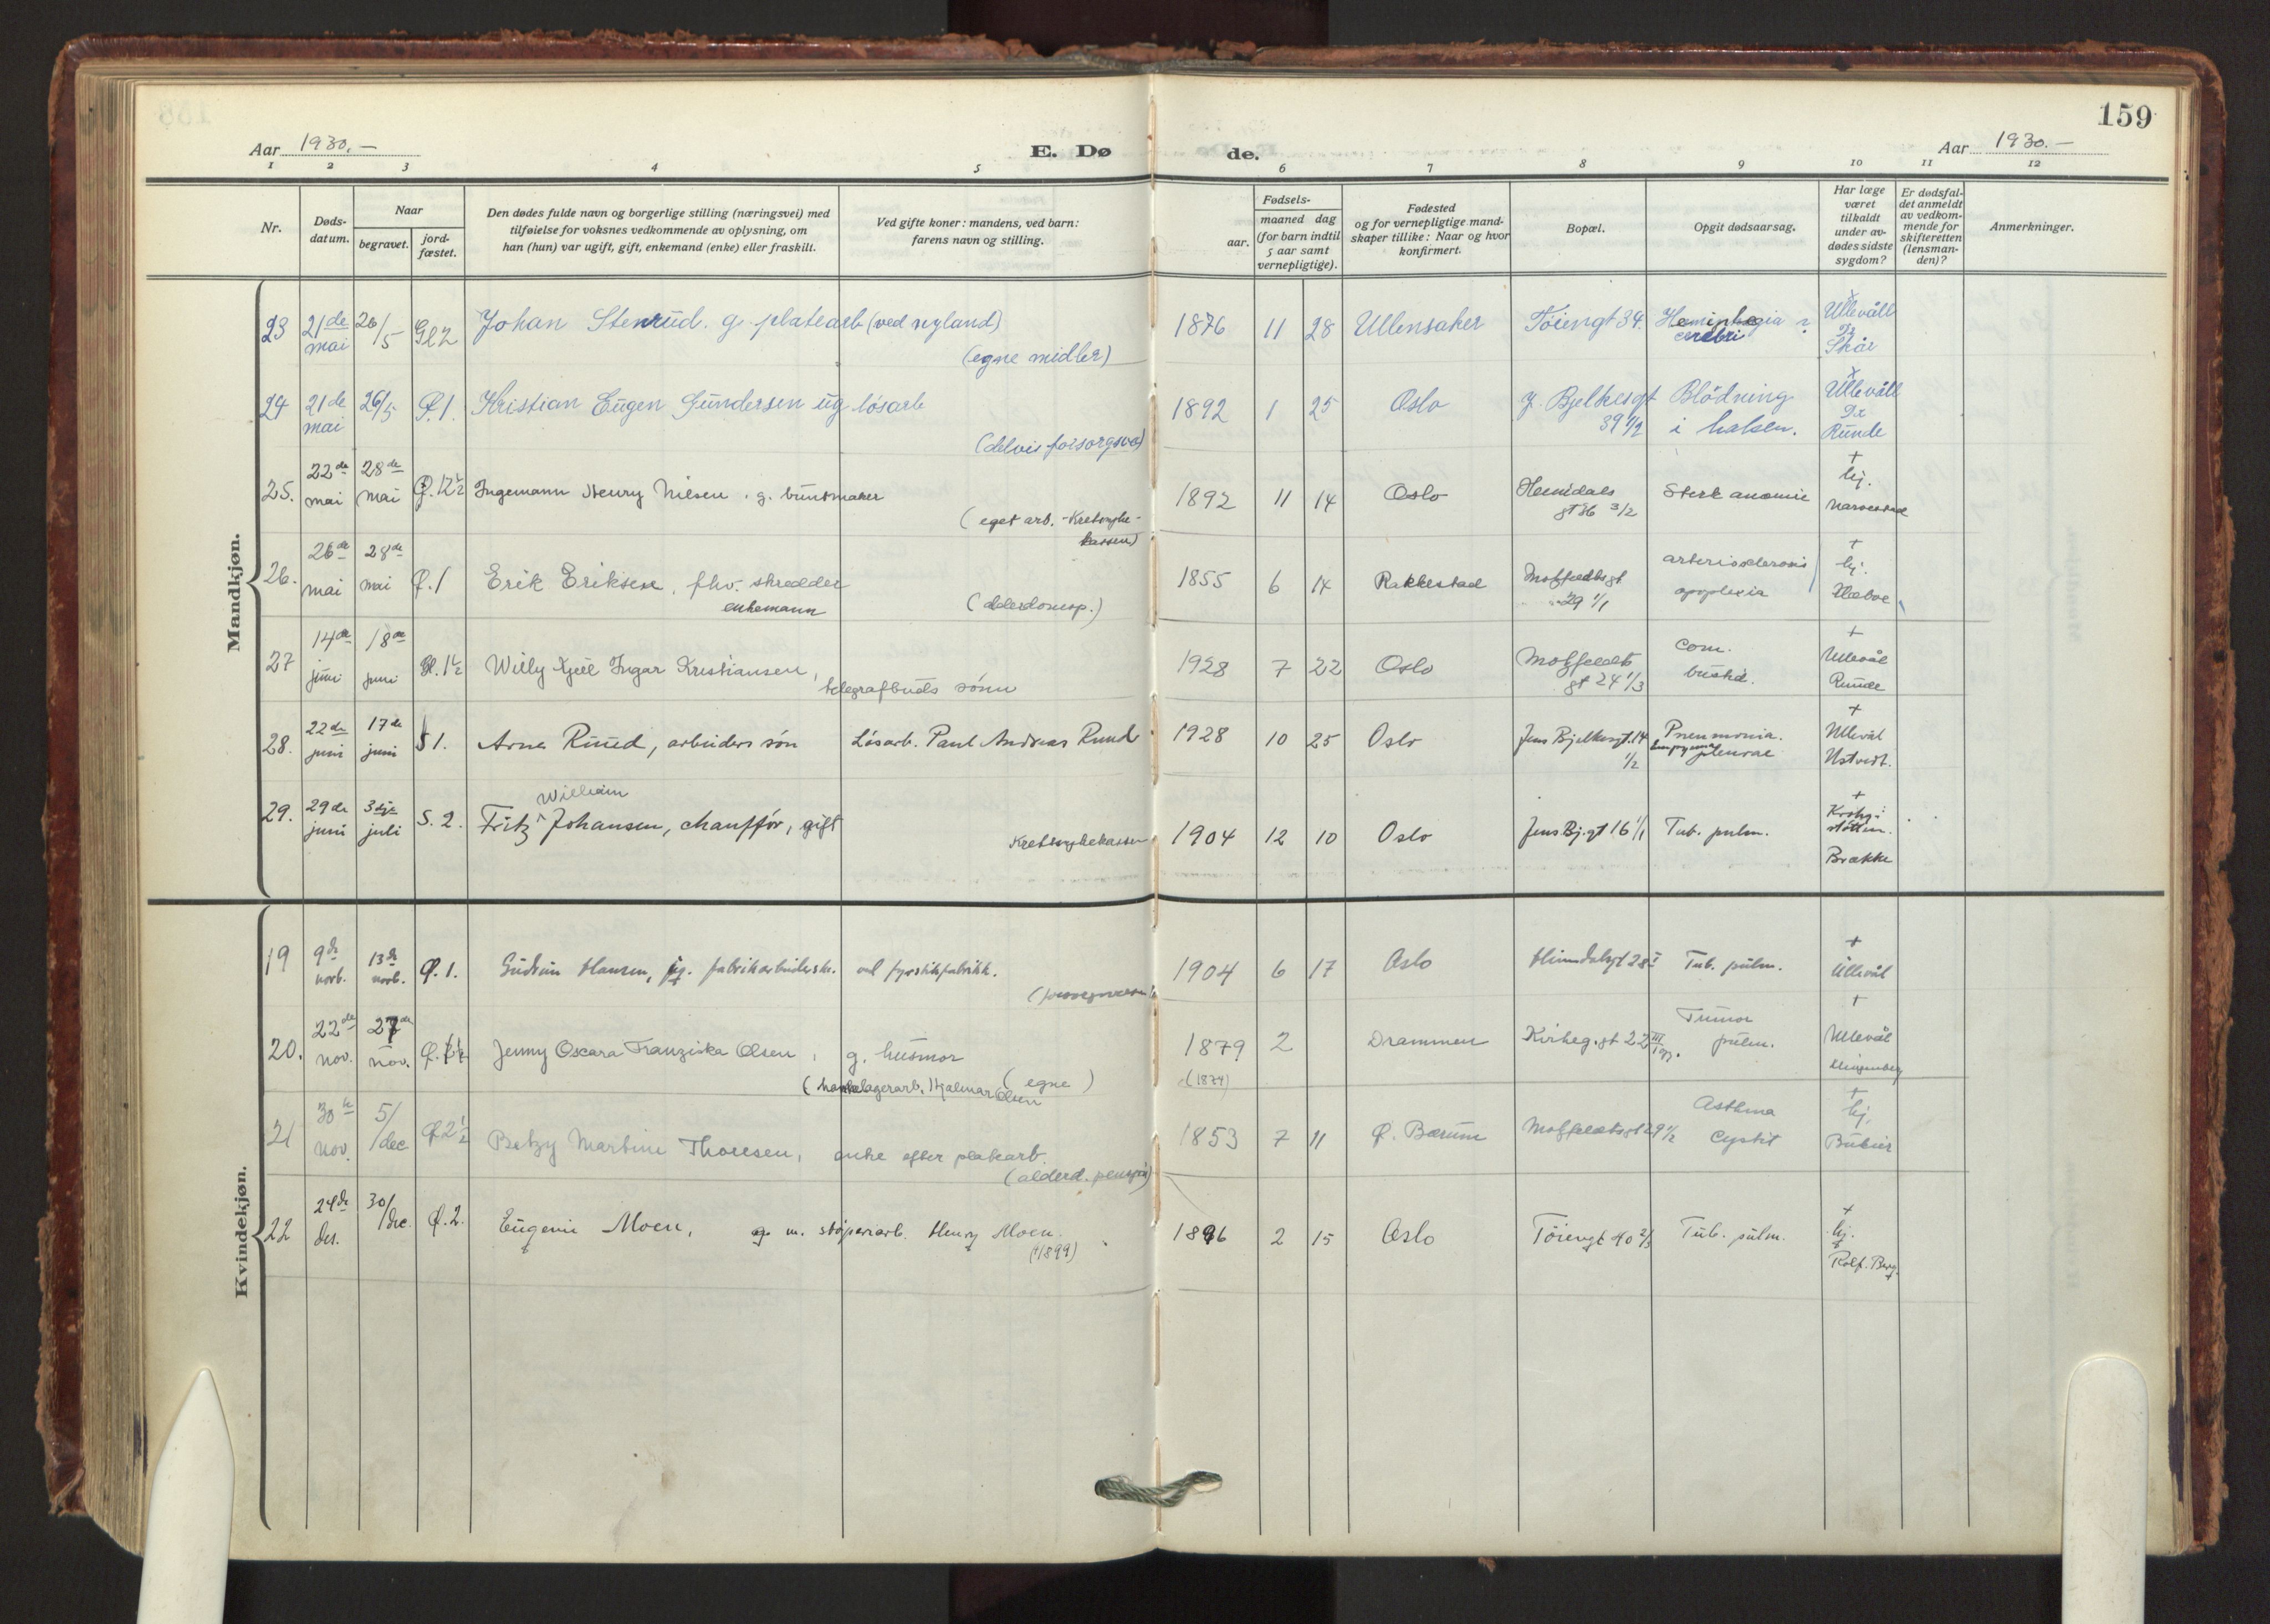 159
Aar 1930.—
E. Døde.
Aar 1930.—
1 2 3 4 5 6 7 8 9 10 11 12
Nr.
Døds-
datum.
Naar
begravet.
jord-
fæstet.
Den dødes fulde navn og borgerlige stilling (næringsvei) med
tilføielse for voksnes vedkommende av oplysning, om
han (hun) var ugift, gift, enkemand (enke) eller fraskilt.
Ved gifte koner: mandens, ved barn:
farens navn og stilling.
Fødsels-
aar.
maaned dag
(for barn indtil
5 aar samt
vernepligtige).
Fødested
og for vernepligtige mand-
skaper tillike: Naar og hvor
konfirmert.
Bopæl.
Opgit dødsaarsag.
Har læge
været
tilkaldt
under av-
dødes sidste
sygdom?
Er dødsfal-
det anmeldt
av vedkom-
mende for
skifteretten
(lensman-
den)?
Anmerkninger.
Mandkjøn.
23 21de mai 26/5 Johan Stenrud. g. platearb (ved nyland) 1876 11 28 Ullensaker Töiengt 34. Hemiplegia ? Ullevåll
cerebri Dr
(egne midler) Skår
24 21de mai 26/5 Ø.1. Kristian Eugen Gundersen ug lösarb 1892 1 25 Oslo J. Bjelkesgt Blödning Ullevåll
39 1/2 i halsen. Dr
(delvis forsorgsv.) Runde
25. 22de mai 28de mai Ø. Ingemann Henry Nilsen. g. buntmaker 1892 11 14 Oslo Heimdals Sterk anæmie hj.
gt 36 3/2 Narvestad
(eget arb. - Kretssyke-
kassen)
26. 26de mai 28de mai Ø.1 Erik Eriksen, fhv. skredder 1855 6 14 Rakkestad Motzfeldts gt arteriosclerosis hj.
enkemann (alderdomsp.) 29 1/1 apoplexia
27 14de juni 18de juni Willy Kjell Ingar Kristiansen, 1928 7 22 Oslo Motzfeldts com. Ullevål
telegrafbuds sönn gt 24 1/3 bustio. Runde
28. 22de juni 17de juni S 1. Arne Ruud, arbeiders sön Lösarb. Paul Andreas Ruud 1928 10 25 Oslo Jens Bjelkesgt. 14 Pneumonia. Ullevål
1/2 Empyema pleurae Ustvedt.
29. 29de juni 3dje juli S. 2. Fritz William Johansen, chauffför, gift 1904 12 10 Oslo Jens Bj.gt 16 1/1 Tub. pulm. Krohg-
Kretssykekassen stötten.
Brække
Kvindekjøn.
19 9de novb. 13de novb. Ø. 1. Gudrun Hansen, ug. fabrikarbeiderske. ved fyrstikfabrikk. 1904 6 17 Oslo Heimdalsgt 28 I Tub. pulm. Ullevål
20. 22de nov. 27de nov. Ø. Jenny Oscara Franziska Olsen, g. husmor 1879 2 Drammen Kirkeg.gt 22 III Tumor Ullevål
opg. pulm. Klingenberg
lagerarb. Hjalmar Olsen (egne) (1874)
21 30te nov. 5/dec Ø 2 1/2 Betzy Martine Thoresen, enke efter platearb. 1853 7 11 Ø. Bærum Motzfeldtsgt 29 1/2 Asthma hj.
(alderd. pensjon) Cystit
22 24de des. 30/dec. Ø. 2. Eugenie Moen, g. m. støperiarb. Henry Moen. 1896 2 15 Oslo Töiengt 40 2/3 Tub. pulm. hj.
(1899) Rolf. Berg.